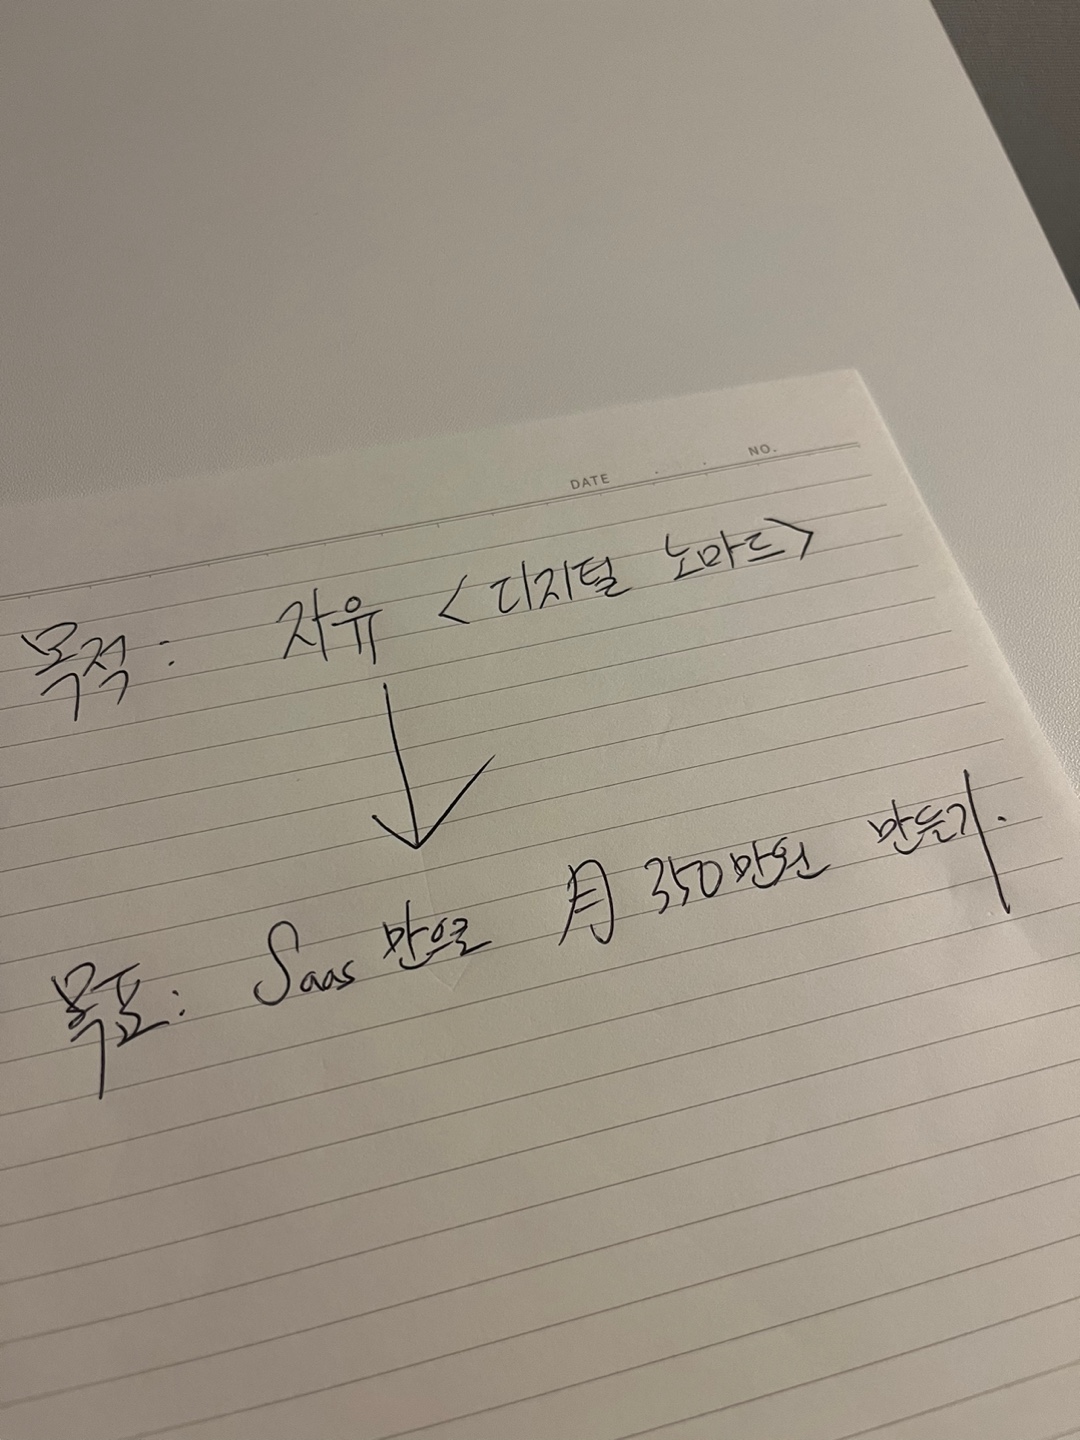 DATE . . NO.
목적 : 자유 <디지털 노마드>
목표 : Saas 만으로 月 350만원 만들기.